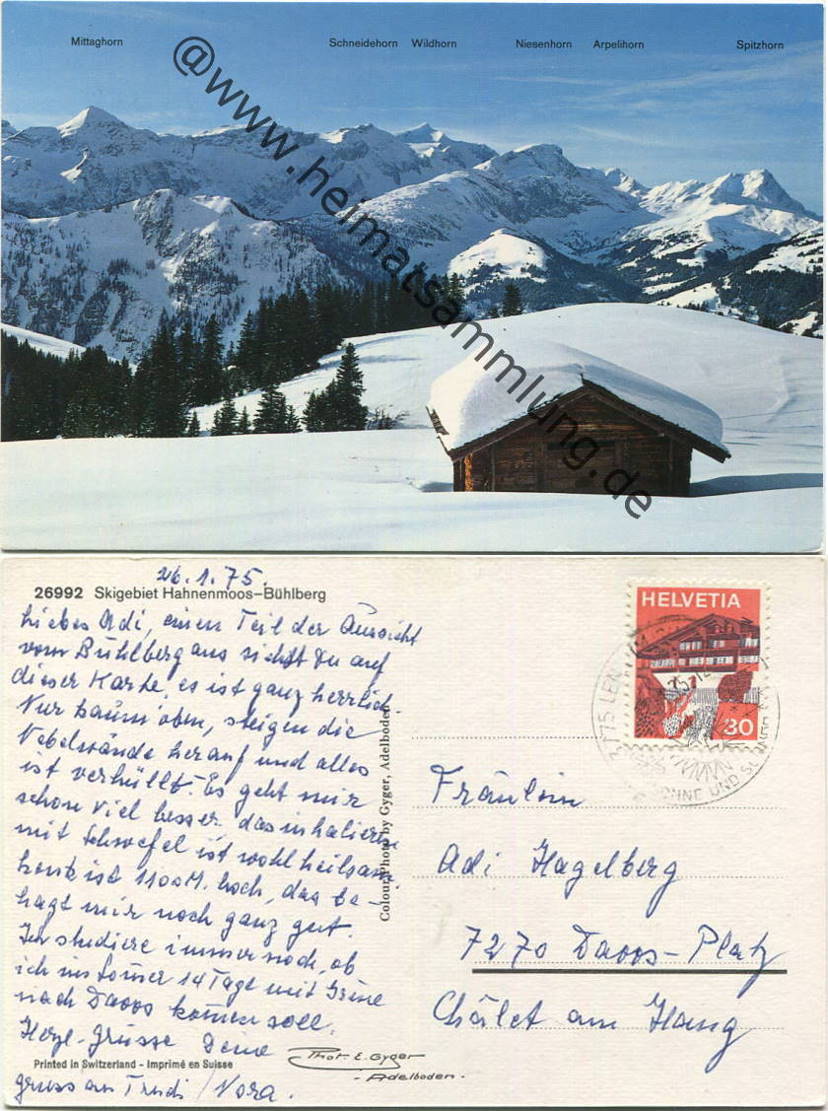 Mittaghorn Schneidehorn Wildhorn Niesenhorn Arpelihorn Spitzhorn
@www.heimatsammlung.de
26.1.75.
26992 Skigebiet Hahnenmoos–Bühlberg
Liebes Adi, einen Teil der Aussicht
vom Bühlberg aus siehst Du auf
dieser Karte, es ist ganz herrlich.
Nur kaum oben, steigen die
Nebelwände herauf und alles
ist verhüllt. Es geht mir
schon viel besser, das inhalieren
mit Schwefel ist wohl heilsam.
Lenk ist 1100 M. hoch, das be-
hagt mir noch ganz gut.
Ich studiere immer noch, ob
ich im Somer 14 Tage mit
nach Davos komen soll.
Herzl. Grüsse Deine
Gruss an Trudi / Nora.
Printed in Switzerland - Imprimé en Suisse
Colour Photo by Gyger, Adelboden
Phot. E. Gyger
- Adelboden -
HELVETIA
30
3775 LEN
Fräulein
Adi Hagelberg
7270 Davos-Platz
Châlet am Hang